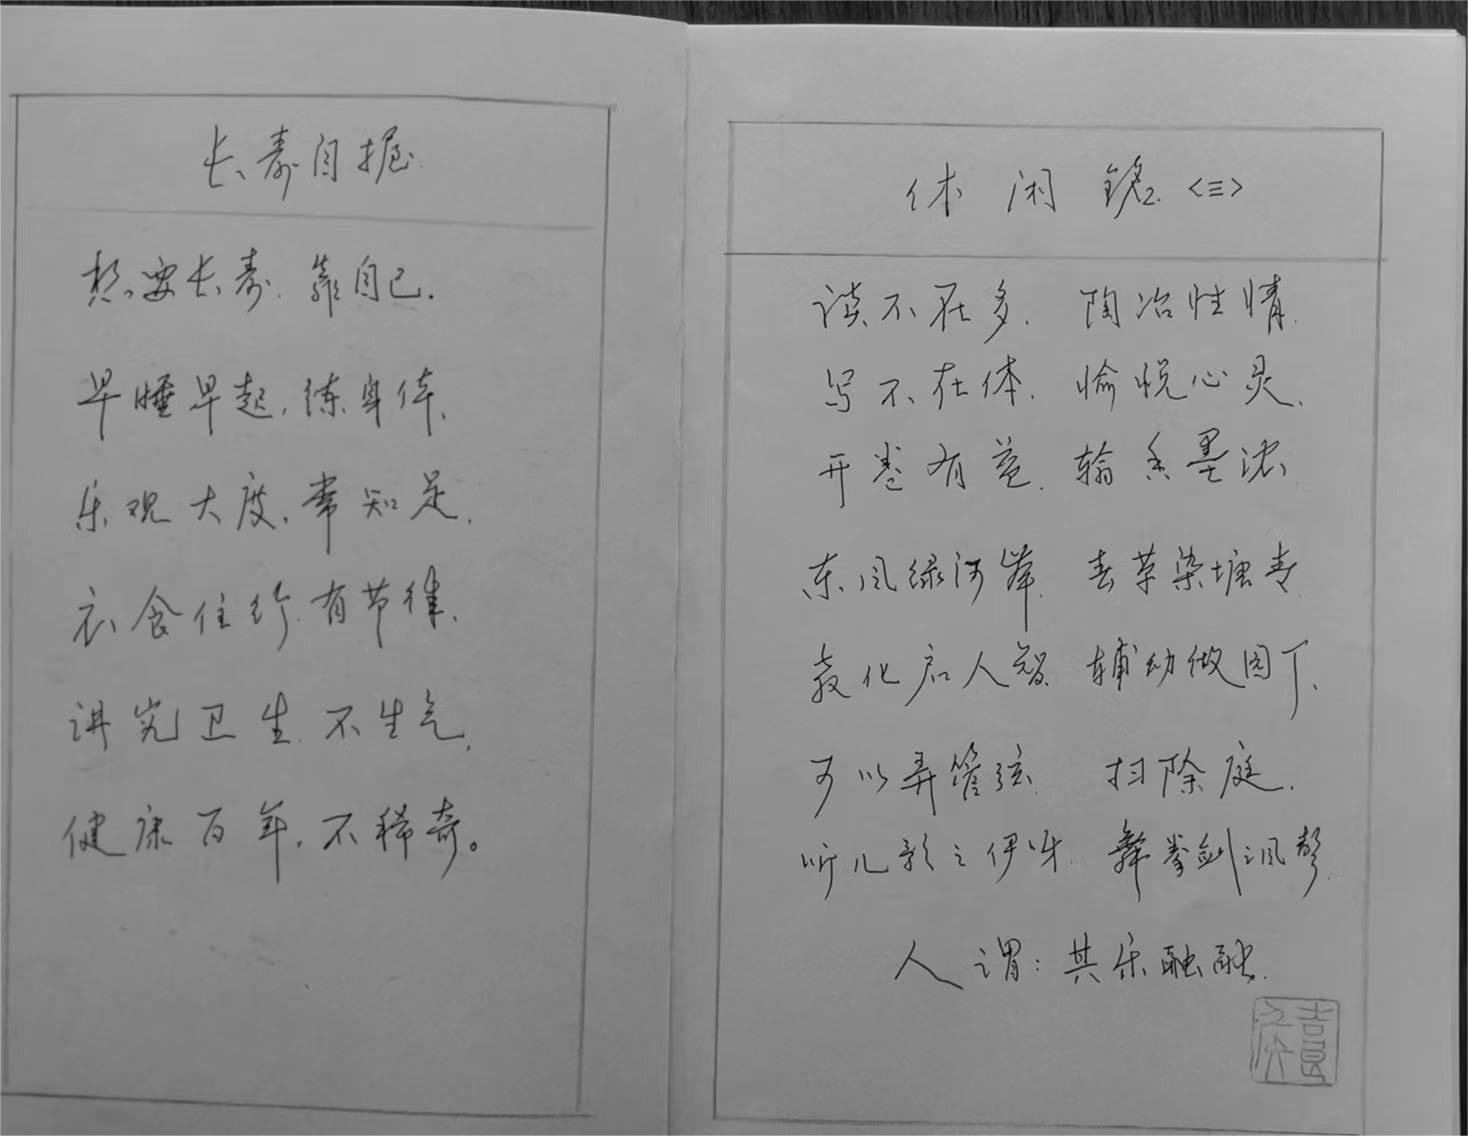 长寿自握
想要长寿.靠自己.
早睡早起,练身体.
乐观大度,常知足.
衣食住行.有节律.
讲究卫生.不生气.
健康百年,不稀奇。
休闲铭<三>
读不在多.陶冶性情.
写不在体.愉悦心灵.
开卷有益.翰香墨浓.
东风绿河岸.春草染塘青
教化启人智.辅幼做园丁.
可以弄管弦.扫除庭.
听儿歌之伊呀.舞拳剑飒声.
人谓:其乐融融.
吉良